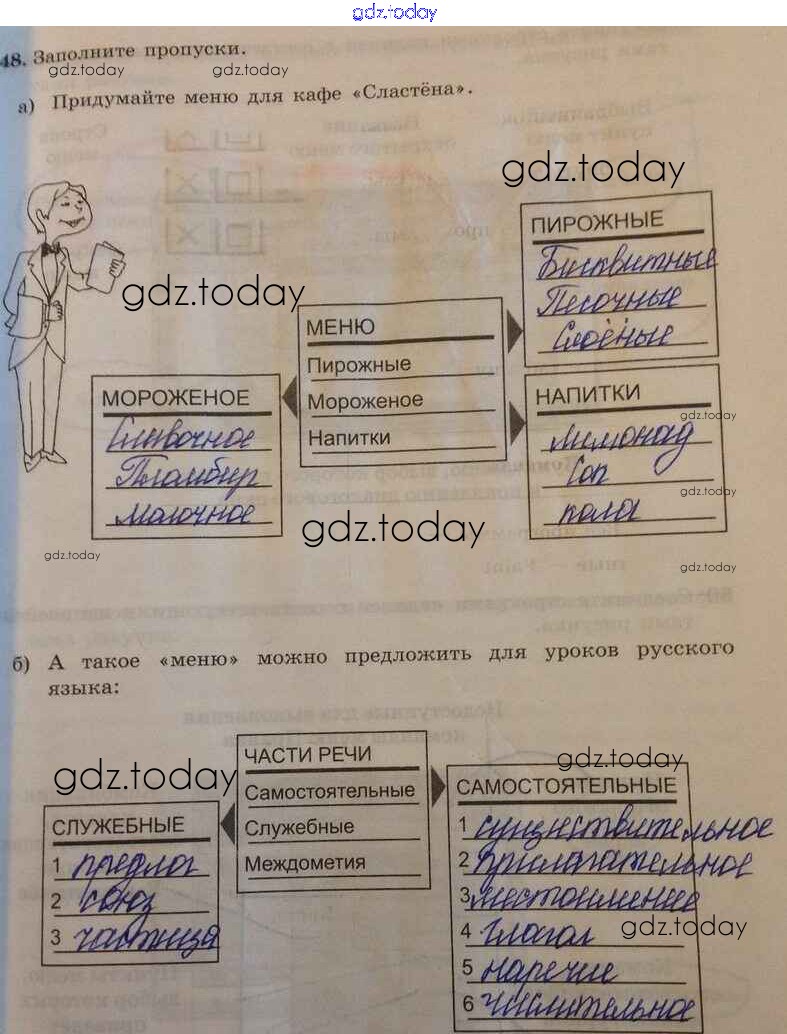 gdz.today
48. Заполните пропуски.
gdz.today gdz.today
а) Придумайте меню для кафе «Сластёна».
gdz.today
ПИРОЖНЫЕ
Бисквитные
Песочные
Слоёные
gdz.today
МЕНЮ
Пирожные
Мороженое
Напитки
МОРОЖЕНОЕ
Сливочное
Пломбир
Молочное
НАПИТКИ
gdz.today
лимонад
Сок
gdz.today
кола
gdz.today
gdz.today
gdz.today
б) А такое «меню» можно предложить для уроков русского
языка:
ЧАСТИ РЕЧИ
Самостоятельные
Служебные
Междометия
gdz.today
gdz.today
СЛУЖЕБНЫЕ
1 предлог
2 союз
3 частица
САМОСТОЯТЕЛЬНЫЕ
1 существительное
2 прилагательное
3 местоимение
4 глагол
gdz.today
5 наречие
6 числительное